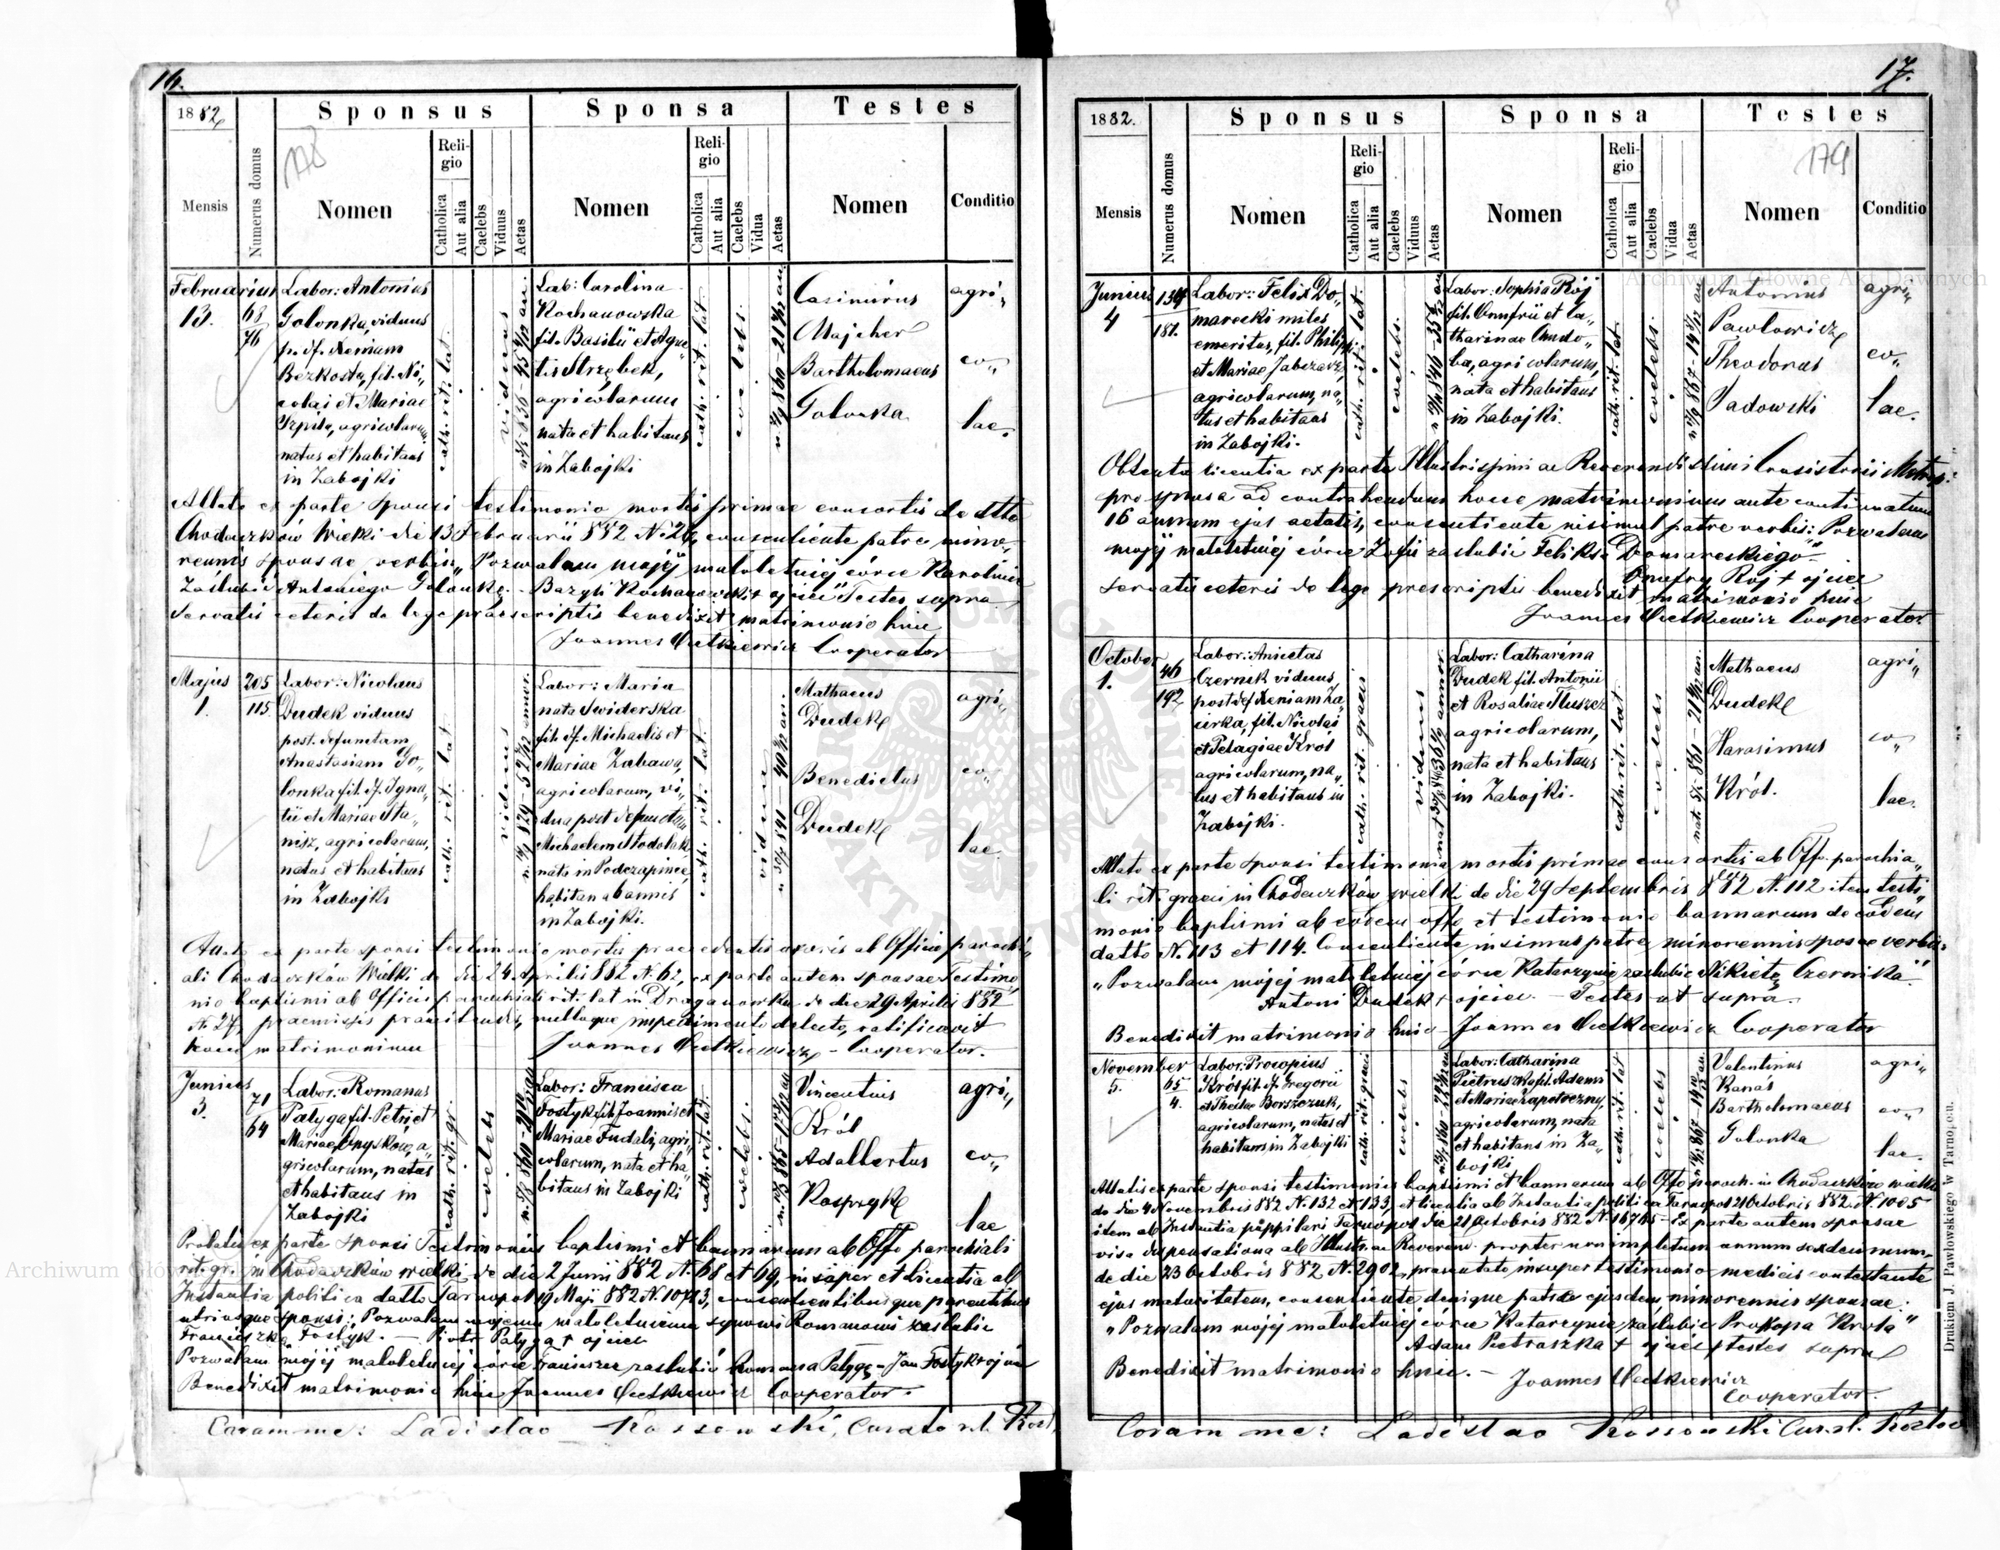 16.
1882
Sponsus
Sponsa
Testes
178
Mensis
Numerus domus
Nomen
Religio
Catholica
Aut alia
Caelebs
Viduus
Aetas
Nomen
Religio
Catholica
Aut alia
Caelebs
Vidua
Aetas
Nomen
Conditio
Februarius
13.
68
76
Labor: Antonius
Golonka, viduus
p. df. Xeniam
fil. Ni„
colai et Mariae
agricolarum
natus et habitans
in Zabojki
cath. rit. lat.
viduus
Lab: Carolina
Kochanowska
fil. Basilii et Agne„
tis Strzębek,
agricolarum
nata et habitans
in Zabojki
cath. rit. lat.
coelebs.
Casimirus
Majcher
Bartholomaeus
Golonka
agri„
co„
lae.
Allato ex parte sponsi testimonio mortis primae consortis de dtto
Chodaczków Wielki die 13 Februarii 882 N. 26, consentiente patre mino„
rennis sponsae verbis: „Pozwalam mojéj małoletniéj córce Karolinie
Zaślubić Antoniego Golonkę. Bazyli Kochanowski + ojciec" Testes supra
Servatis ceteris de lege praescriptis benedixit matrimonio huic
Joannes Cooperator
Majus
1.
205
115.
Labor: Nicolaus
Dudek viduus
post defunctam
Anastasiam Go„
lonka fil. df. Igna„
tii et Mariae Sta„
nisz, agricolarum,
natus et habitans
in Zabojki
cath. rit. lat.
viduus
Labor: Maria
nata Swiderska
fil. df. Michaelis et
Mariae Zabawa,
agricolarum, vi„
dua post defunctum
Michaelem Stodolak
nata in Podczapince,
habitans ab annis
in Zabojki.
cath. rit. lat.
vidua
Mathaeus
Dudek
Benedictus
Dudek
agri„
co„
lae
ex parte sponsi testimonio mortis praecedentis uxoris ab Officio parochi„
ali Chodaczków Wielki de die 24. Aprilis 882 N. 62, ex parte autem sponsae Testimo„
nio baptismi ab Officio parochiali rit. lat in Draganówka de die 29 Aprilis 882
N. 27, praemissis praemittendis, nulloque impedimento detecto, ratificavit
hocce matrimonium Joannes Cooperator.
Junius
3.
71
64
Labor: Romanus
Patyga fil. Petri et
Mariae a„
gricolarum, natus
et habitans in
Zabojki
cath. rit. gr.
coelebs
Labor: Francisca
Fostyk fil. Joannis et
Mariae Fudali, agri„
colarum, nata et ha„
bitans in Zabojki
cath. rit. lat.
coelebs.
Vincentius
Król
Adalbertus
Kasprzyk
agri„
co„
lae
Prolatis ex parte sponsi Testimoniis baptismi et bannorum ab Offo parochiali
rit. gr. in Chodaczków wielki de die 2 Junii 882 N. 68 et 69, insuper et licentia ab
Instantia politica datto Tarnopol 19 Maji 882 N. consentientibusque parentibus
utriusque sponsi: Pozwalam mojemu małoletniemu synowi Romanowi zaślubić
Franciszkę Fostyk. — Piotr Patyga + ojciec
Pozwalam mojéj małoletniéj córce Franciszce zaślubić Romana Patygę - Jan Fostyk + ojciec
Benedixit matrimonio huic Joannes Cooperator.
Coram me: Ladislao Kossowski, Curato r.l.
17.
1882.
Sponsus
Sponsa
Testes
179
Mensis
Numerus domus
Nomen
Religio
Catholica
Aut alia
Caelebs
Viduus
Aetas
Nomen
Religio
Catholica
Aut alia
Caelebs
Vidua
Aetas
Nomen
Conditio
Junius
4
134
187.
Labor: Felix Do„
marecki miles
emeritus, fil. Philippi
et Mariae
agricolarum, na„
tus et habitans
in Zabojki.
cath. rit. lat.
coelebs.
Labor: Sophia Rój
fil. Onufrii et Ca„
tharinae
agricolarum,
nata et habitans
in Zabojki.
cath. rit. lat.
coelebs.
Antonius
Pawłowicz
Theodorus
Sadowski
agri„
co„
lae.
Obtenta licentia ex parte Illustrissimi ac Reverendissimi Consistorii
pro sponsa ad contrahendum hocce matrimonium ante continuatum
16 annum ejus aetatis, consentiente nisimul patre verbis: „Pozwalam
mojéj małoletniéj córce Zofii zaślubić Feliksa Domareckiego"
Onufry Rój + ojciec
servatis ceteris de lege prescriptis benedixit matrimonio huic
Joannes Cooperator
October
1.
46
192
Labor: Anicetas
Czernik viduus,
post df. Xeniam
fil. Nicolai
et Pelagiae Król
agricolarum, na„
tus et habitans in
Zabojki.
cath. rit. graeci
viduus
Labor: Catharina
Dudek fil. Antonii
et Rosaliae Tłuszcz
agricolarum,
nata et habitans
in Zabojki.
cath. rit. lat.
coelebs
Mathaeus
Dudek
Harasimus
Król.
agri„
co„
lae.
Allato ex parte sponsi testimonio mortis primae consortis ab Offo. parochia„
li rit. graeci in Chodaczków wielki de die 29 Septembris 882 N. 112 item testi„
monio baptismi ab eodem offo et testimonio bannorum de eodem
datto N. 113 et 114. Consentiente insimul patre minorennis sponsae verbis:
„Pozwalam mojéj małoletniéj córce Katarzynie zaślubić Nikietę Czernika."
Antoni Dudek + ojciec. — Testes ut supra.
Benedixit matrimonio huic — Joannes Cooperator
November
5.
65
4.
Labor: Procopius
Król fil. df. Gregorii
et Theclae Borszczuk,
agricolarum, natus et
habitans in Zabojki
cath. rit. graeci
coelebs
Labor: Catharina
Pietruszka fil. Adami
et Mariae Zapotoczny,
agricolarum, nata
et habitans in Za„
bojki
cath. rit. lat
coelebs
Valentinus
Kanas
Bartholomaeus
Golonka
agri„
co„
lae.
Allatis ex parte sponsi testimoniis baptismi et bannorum ab Offo paroch. in Chodaczków wielki
de die 4 Novembris 882 N. 132 et 133, et licentia ab Instantia politica Tarnopol 21 Octobris 882. N. 1005
item ab Instantia puppilari Tarnopol die 21 Octobris 882 N. 16765 - Ex parte autem sponsae
visa dispensationa ab Illustr. ac Reverend. propter non impletum annum sexdecimum,
de die 23 Octobris 882 N. 2902, praesentato insuper testimonio medicis contestante
ejus maturitatem, consentiente denique patre ejusdem minorennis sponsae:
„Pozwalam mojéj małoletniéj córce Katarzynie zaślubić Prokopa Króla"
Adam Pietraszka + ojciec / testes supra
Benedixit matrimonio huic. — Joannes
Cooperator.
Coram me: Ladislao Kossowski Cur. r.l.
Drukiem J. Pawłowskiego w Tarnopolu.
Archiwum Główne Akt Dawnych
ARCHIWUM GŁÓWNE AKT DAWNYCH